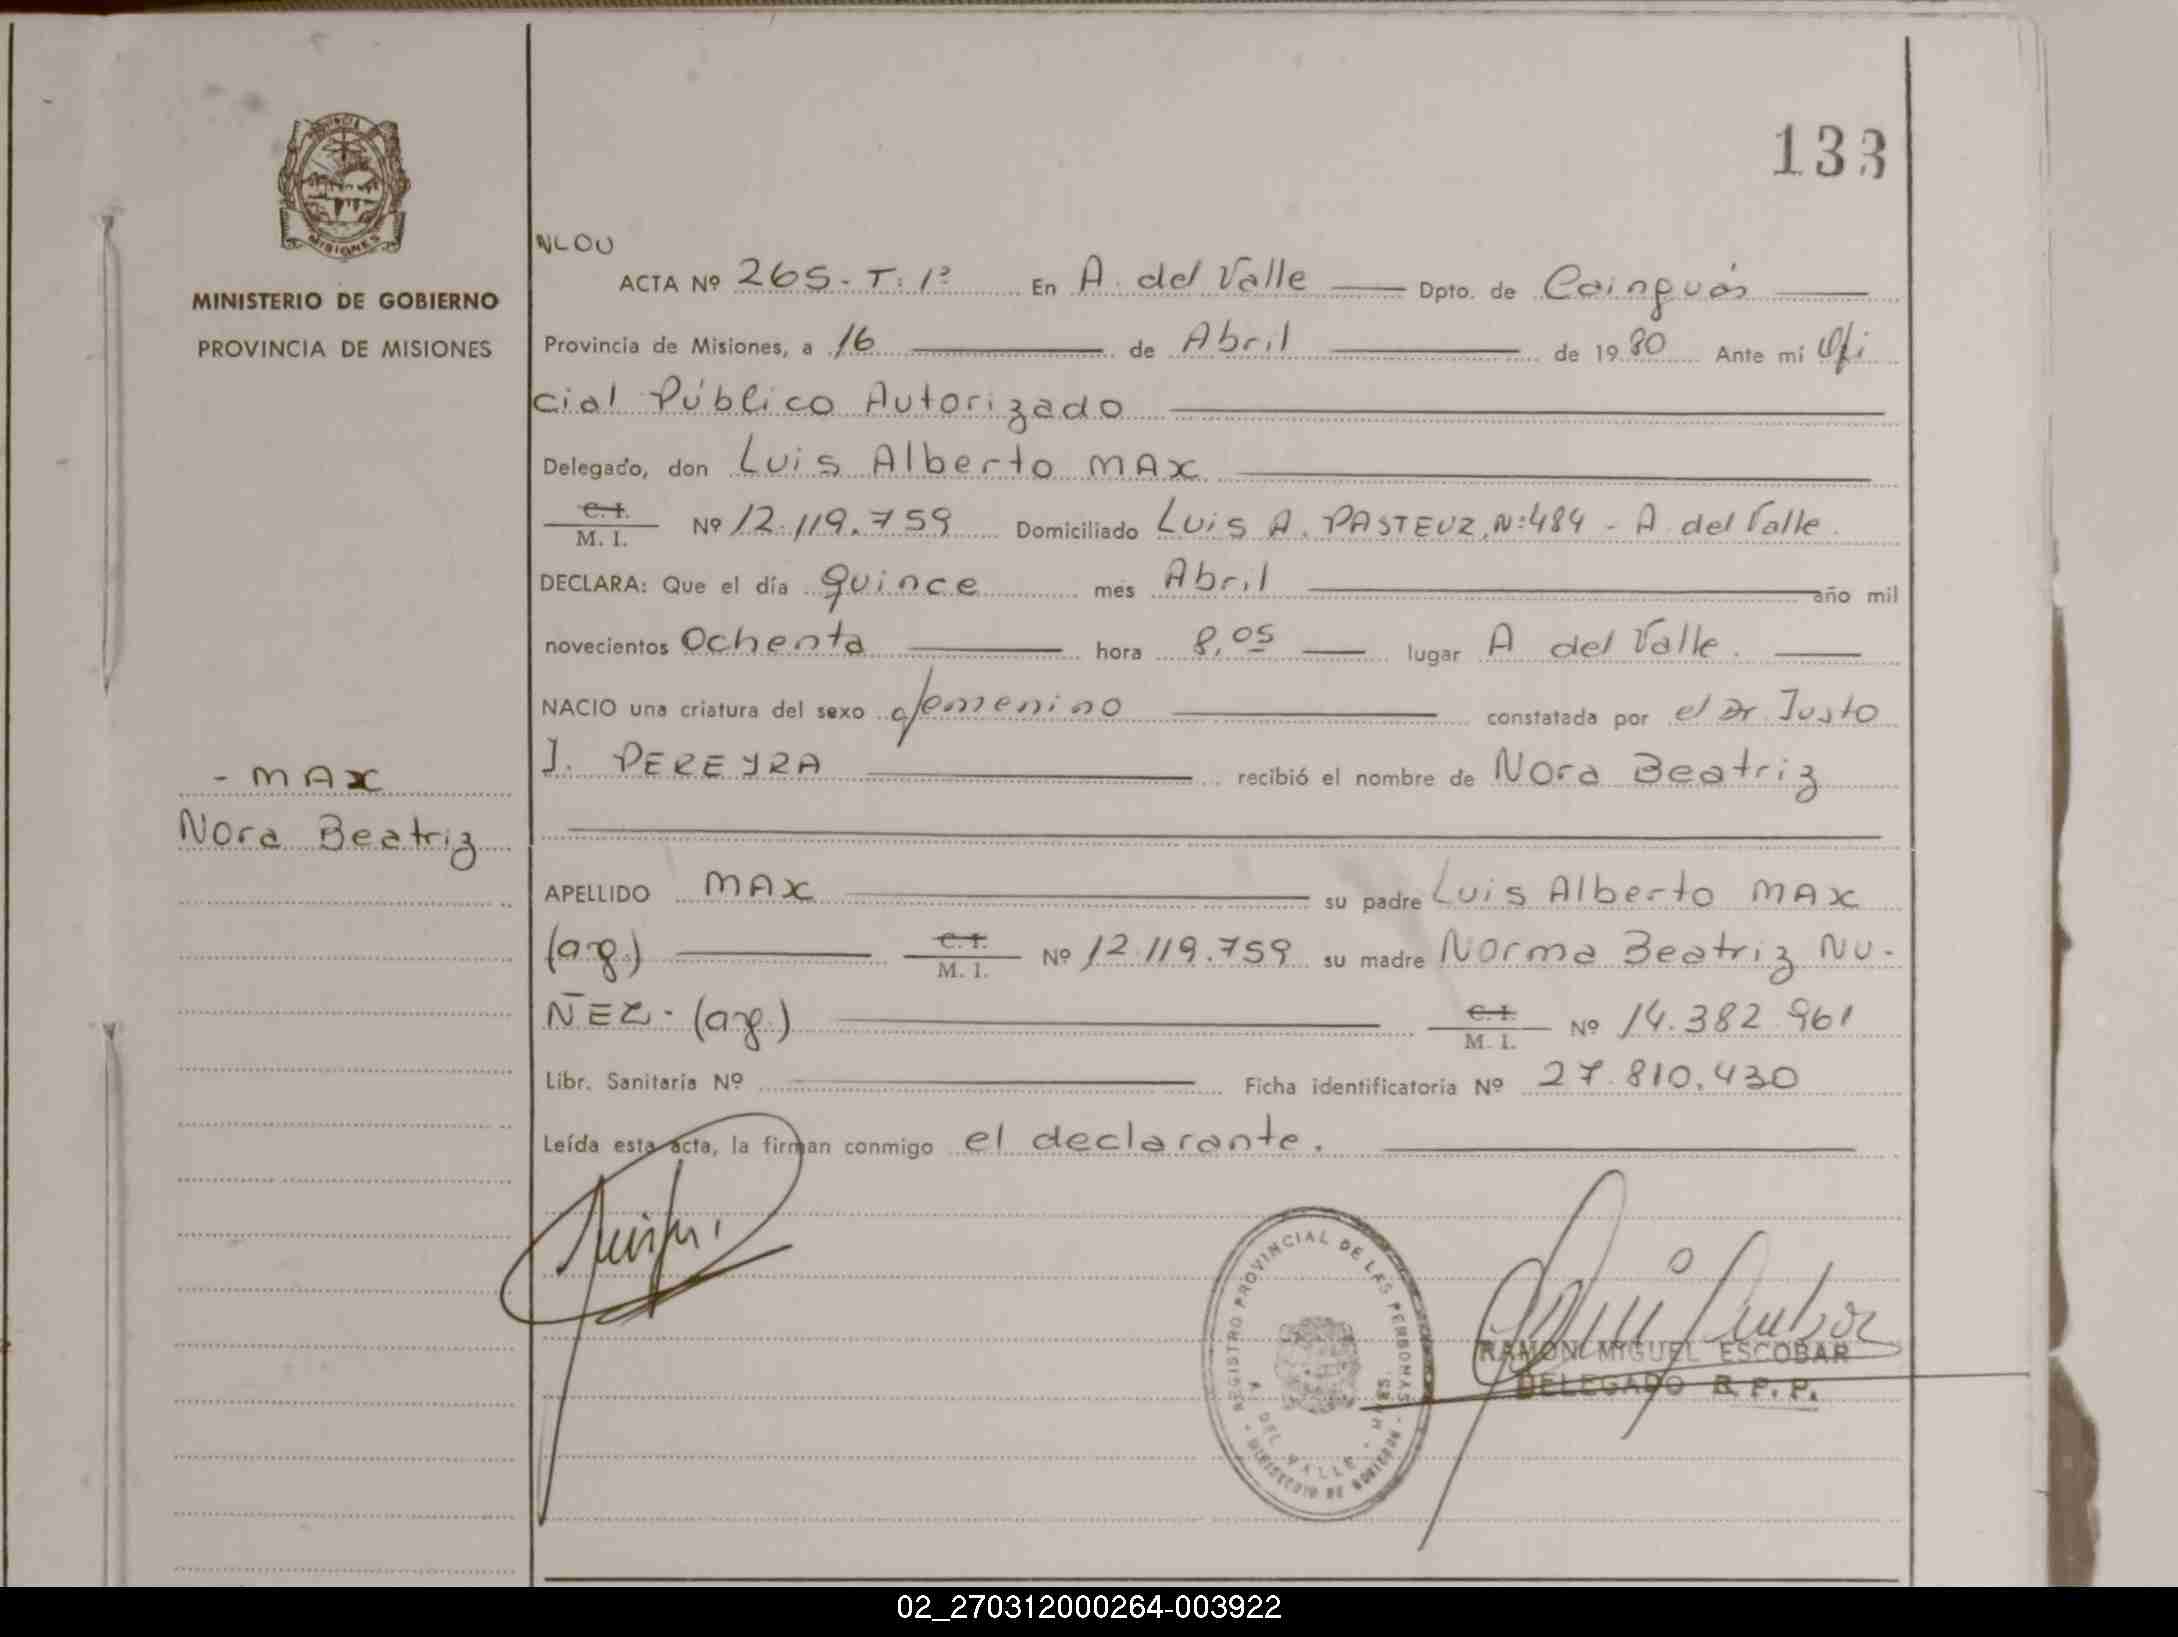 133
PROVINCIA
MISIONES
MINISTERIO DE GOBIERNO
PROVINCIA DE MISIONES
NLOU
ACTA Nº 265 - T: 1º En A. del Valle Dpto. de Cainguás
Provincia de Misiones, a 16 de Abril de 1980 Ante mí Ofi
cial Público Autorizado
Delegado, don Luis Alberto MAX
C. I.
M. I. Nº 12.119.759 Domiciliado Luis A. PASTEUR, Nº 484 - A del Valle.
DECLARA: Que el día quince mes Abril año mil
novecientos Ochenta hora 8,05 lugar A del Valle.
NACIO una criatura del sexo femenino constatada por el Dr Justo
J. PEREYRA recibió el nombre de Nora Beatriz
- MAX
Nora Beatriz
APELLIDO MAX su padre Luis Alberto MAX
(arg.) C. I. M. I. Nº 12.119.759 su madre Norma Beatriz NU-
ÑEZ - (arg.) C. I. M. I. Nº 14.382.961
Libr. Sanitaria Nº Ficha identificatoria Nº 27.810.430
Leída esta acta, la firman conmigo el declarante.
REGISTRO PROVINCIAL DE LAS PERSONAS
A. DEL VALLE - MNES.
MINISTERIO DE GOBIERNO
RAMON MIGUEL ESCOBAR
DELEGADO R. P. P.
02_270312000264-003922